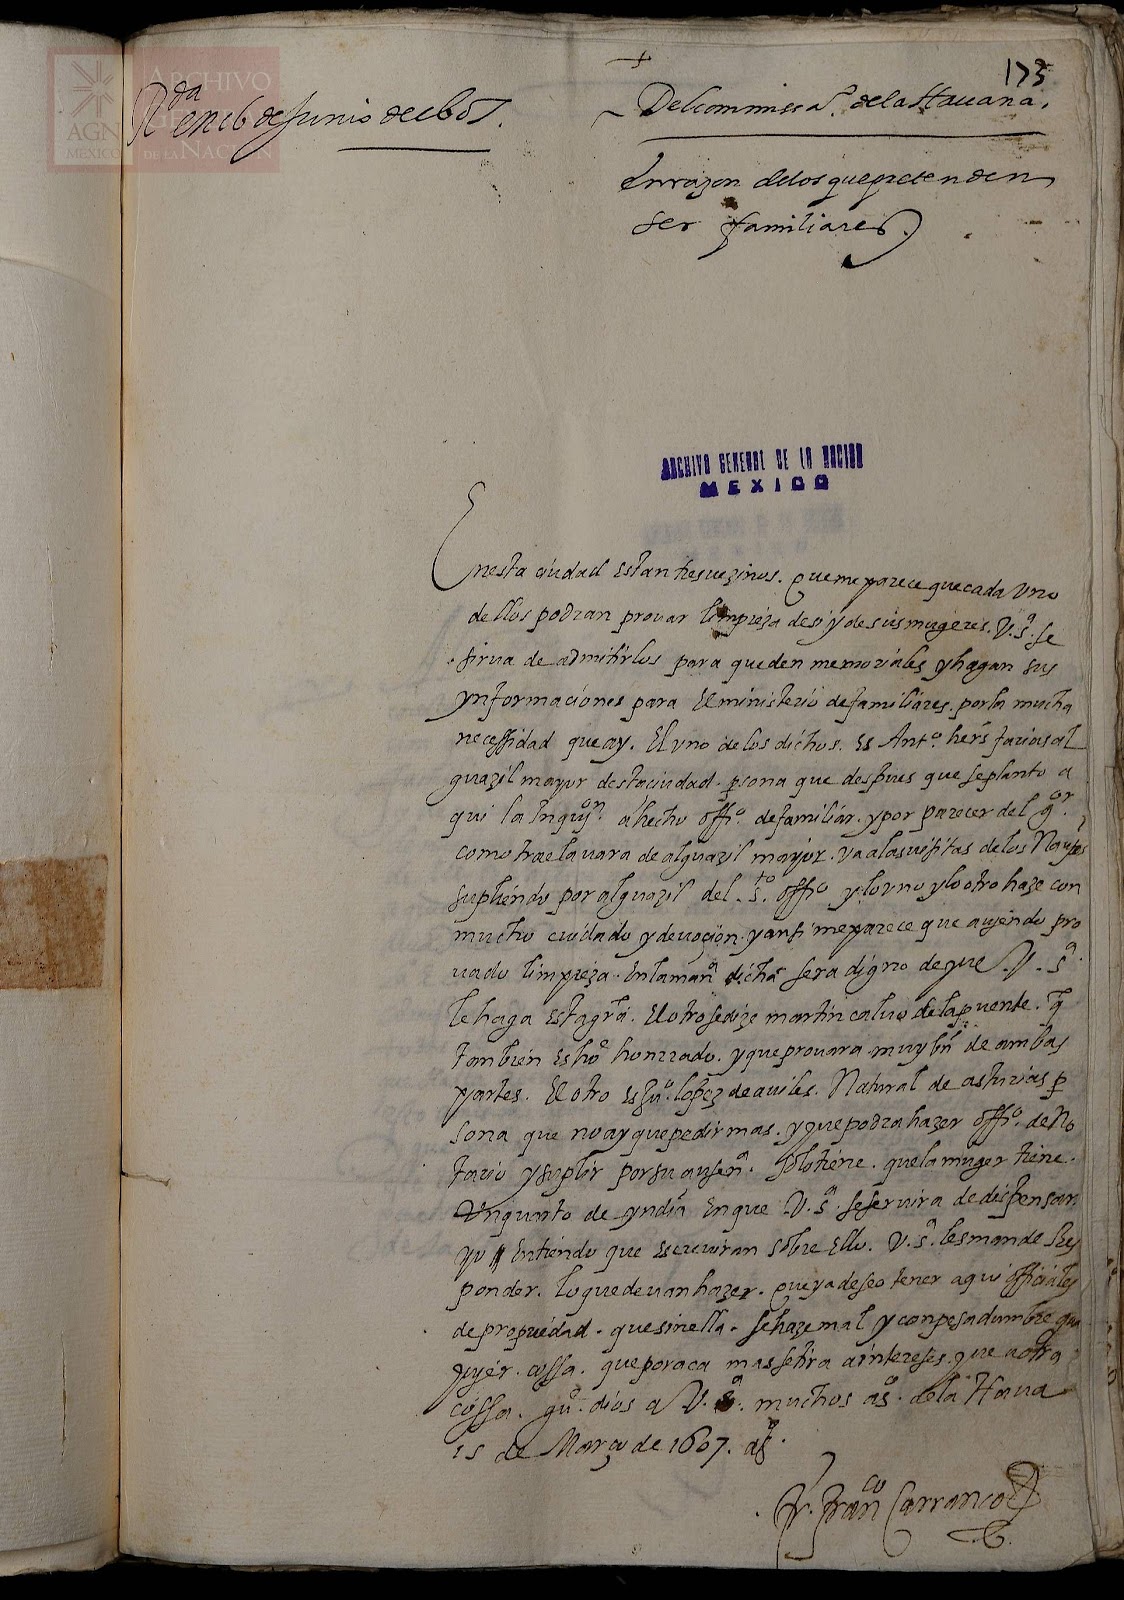 173
+
Rda en 16 de Junio de 1607.
Del commissro. de la Havana.
En razon de los que pretenden
ser familiares.
ARCHIVO GENERAL DE LA NACION
MEXICO
En esta ciudad estan tres vezinos. que me parece que cada uno
dellos podran provar limpieza de si y de sus mugeres. V. Sa. se
sirva de admitirlos para que den memoriales y hagan sus
ynformaciones para el ministerio de familiares. por la mucha
necessidad que ay. El uno de los dichos. es Anto. hers farias al
guazil mayor desta ciudad. psona que despues que se planto a
qui la Inquyon. a hecho offo. de familiar. y por parecer del gor.
como trae la vara de alguazil mayor. va a las visitas de los Navios
supliendo por alguazil del. sto. offo y lo uno y lo otro haze con
mucho cuidado y devoçion. y ansi me parece que aviendo pro
vado limpieza. en la mana dicha sera digno de que. V. Sa.
le haga esta gra. El otro se dize martin calvo de la puente. q
tambien es ho honrrado. y que provara muy bn de ambas
partes. El otro es Juo. lopez de aviles. Natural de asturias p
sona que no ay que pedir mas. y que podra hazer offo. de No
tario y suplir por su ausena. solo tiene. que la muger tiene.
un quarto de yndia en que V. Sa. se servira de dispensar.
yo entiendo que escriviran sobre ello. V. Sa. les mande Res
ponder. lo que devan hazer. que ya deseo tener aqui officiales
de propiedad. que sin ella. se haze mal y con pesadumbre qua
lquier. cossa. que por aca mas se tira a intereses. que a otra
cossa. gue. dios a V. Sa. muchos as. de la Hava
15 de Março de 1607. as.
Fr. Franco Carranco
ARCHIVO GENERAL DE LA NACIÓN
AGN
MÉXICO